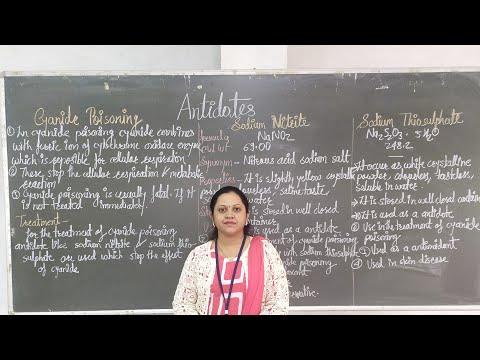 Antidotes
Cyanide Poisoning
① In cyanide poisoning cyanide combines
with ferric ion of cytochrome oxidase enzyme
which is reponsible for cellular respiration
② These stop the cellular respiration & metabolic
reaction
③ Cyanide poisoning is usually fatal. If it
is not treated immediately
Treatment -
For the treatment of cyanide poisoning
antidote like sodium nitrite & sodium thio
sulphate are used which stop the effect
of cyanide
Sodium Nitrite
Formula NaNO2
Mol. wt 69.00
Synonym - Nitrous acid sodium salt
Properties - It is slightly yellowish crystalline
powders, saline taste
water
is stored in well closed
is used as a antidote
treatment of cyanide poisoning
with sodium thiosulphate
cyanide poisoning
Sodium Thiosulphate
Na2S2O3. 5H2O
248.2
It occur as white crystalline
powder, odourless, tasteless,
soluble in water
It is stored in well closed container
① It is used as a antidote
② Use in the treatment of cyanide
poisoning
③ Used as a antioxidant
④ Used in skin disease